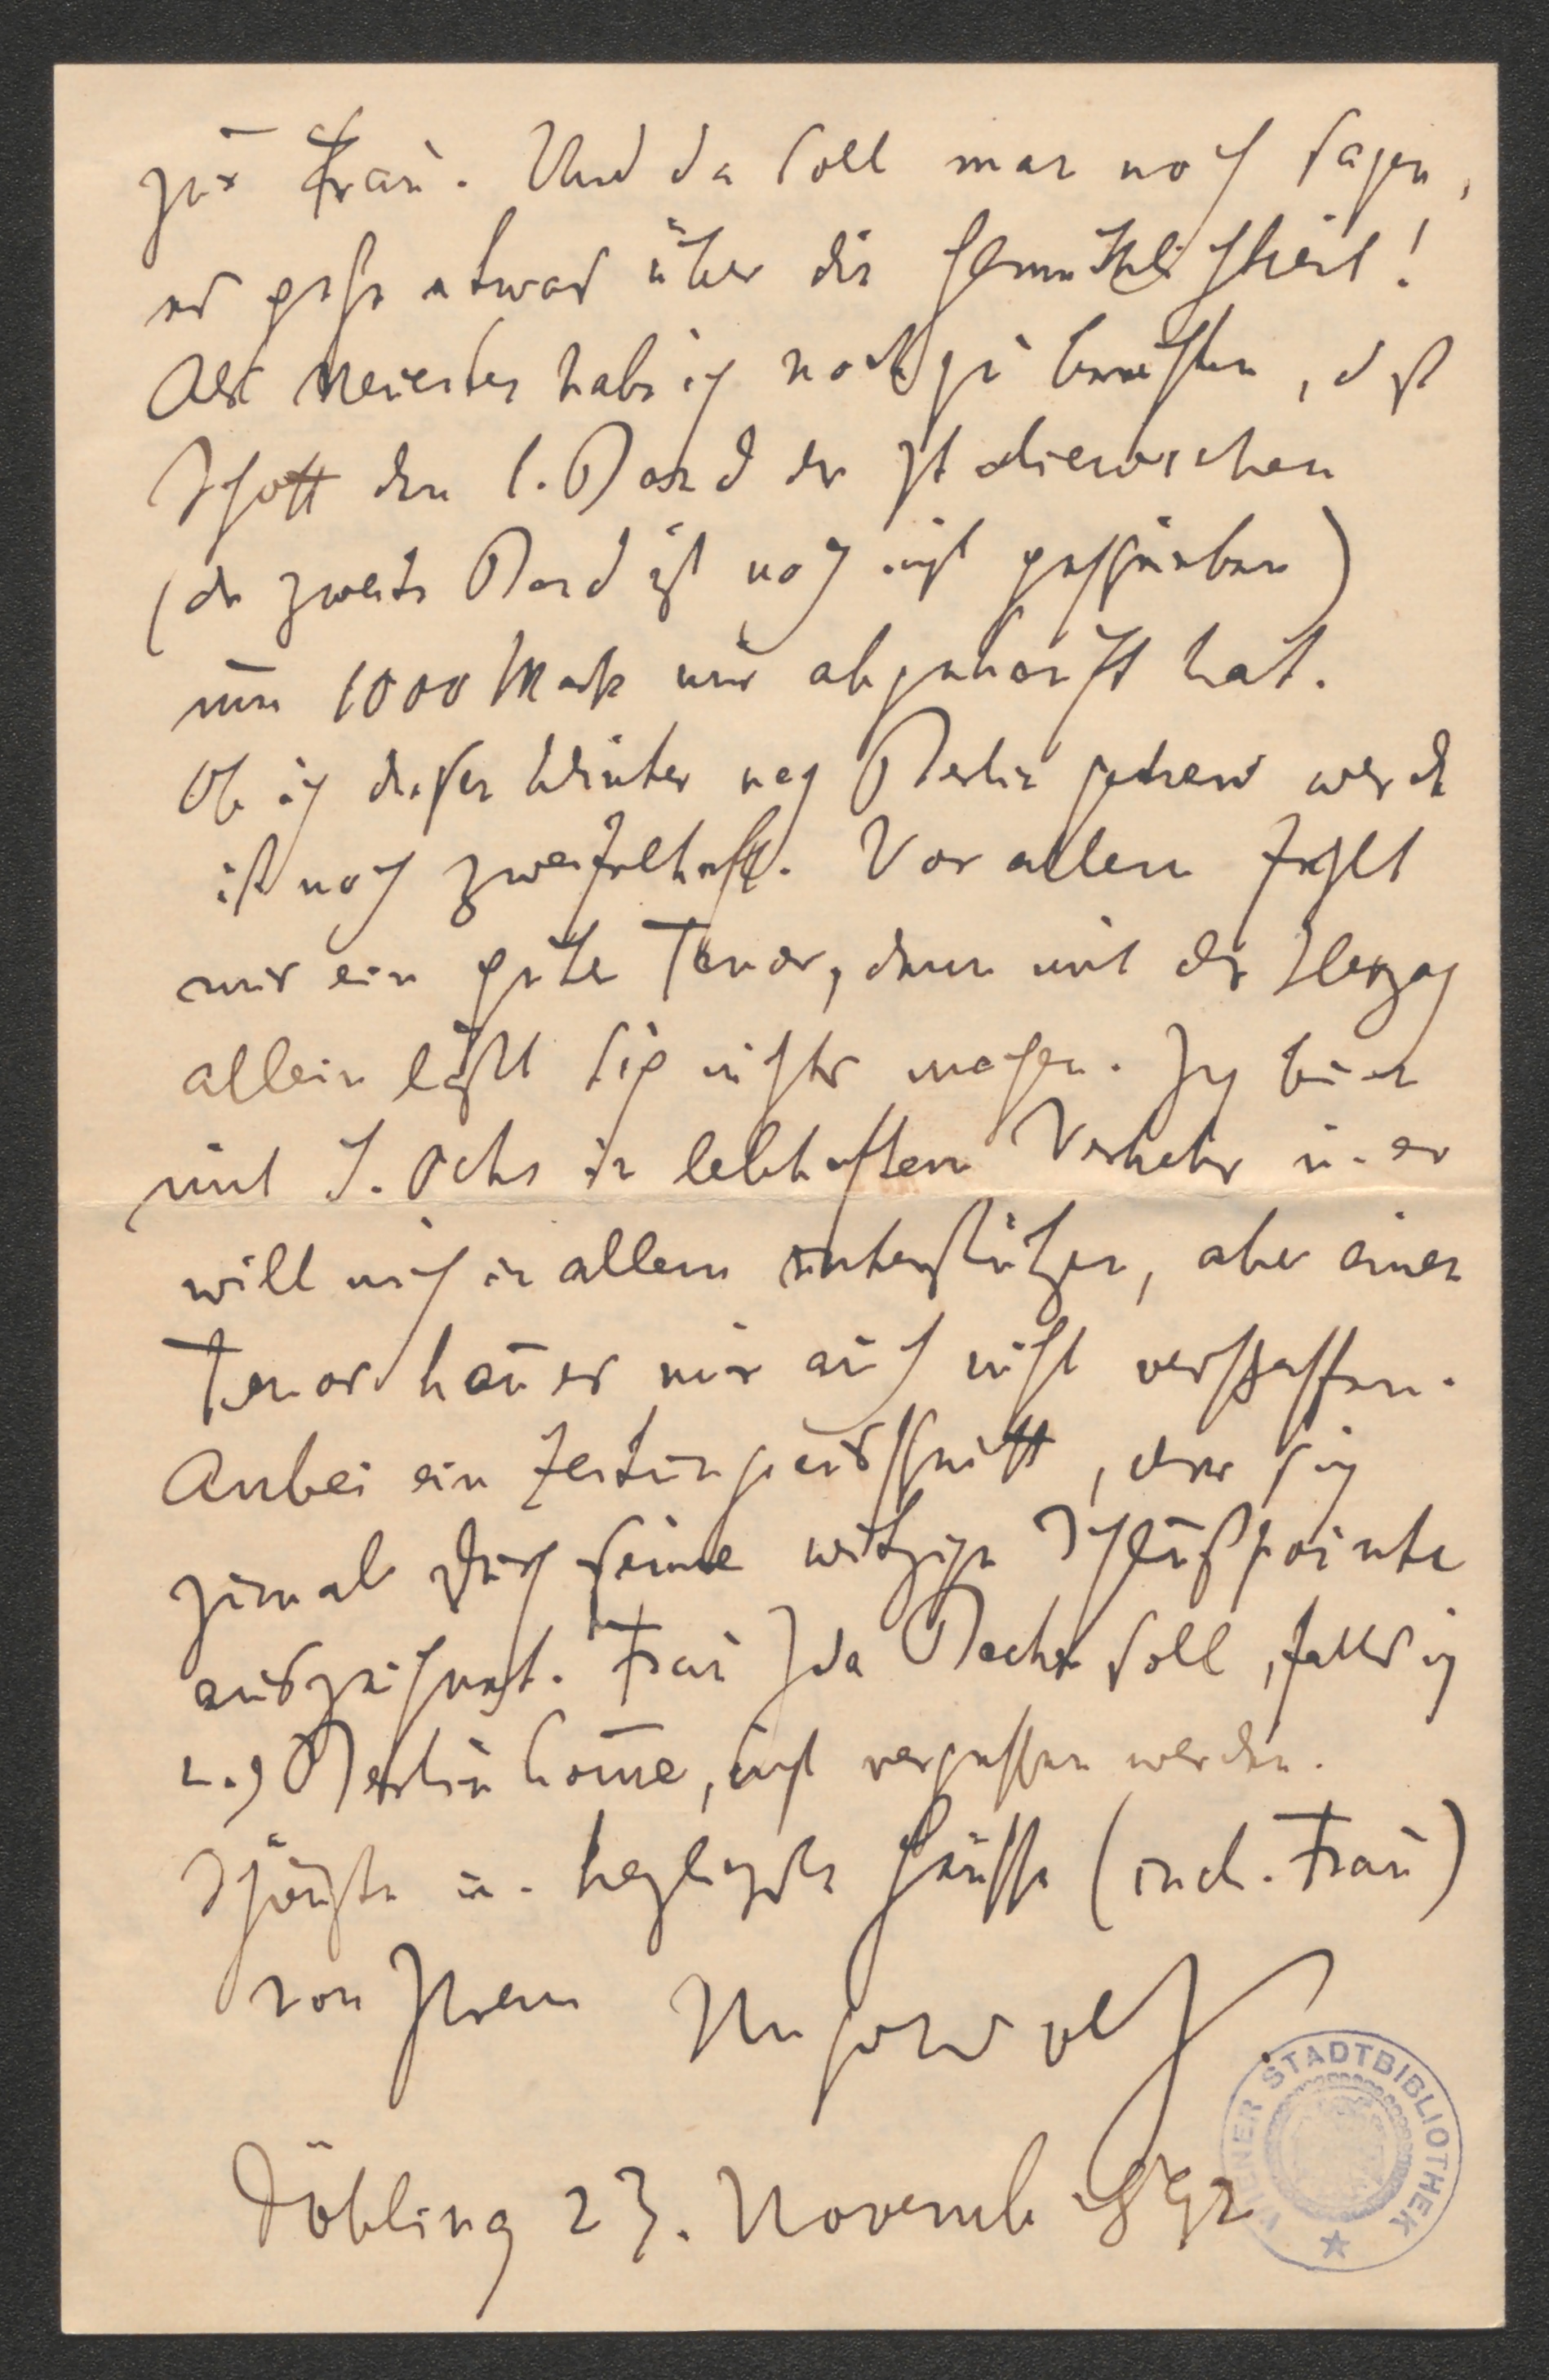 zur Frau. Und da soll man noch sagen,
es gehe etwas über die Gemüthlichkeit!
Als Neuestes habe ich noch zu berichten, daß
Schott den 1. Band der Italienischen
(der zweite Band ist noch nicht geschrieben)
um 1000 Mark mir abgekauft hat.
Ob ich diesen Winter nach Berlin gehen werde
ist noch zweifelhaft. Vor allem fehlt
mir ein guter Tenor, denn mit der Herzog
allein läßt sich nichts machen. Ich bin
mit S. Ochs in lebhaftem Verkehr u. er
will mich in allem unterstützen, aber einen
Tenor kan̄ er mir auch nicht verschaffen.
Anbei ein Zeitungsausschnitt, der sich
zumal durch seine witzige Schlußpointe
auszeichnet. Frau Ida Becker soll, falls ich
nach Berlin kom̄e, nicht vergessen werden.
Schönste u. herzlichste Grüsse (incl. Frau)
von Ihrem Hugo Wolf
Döbling 23. Novemb 1892
WIENER STADTBIBLIOTHEK